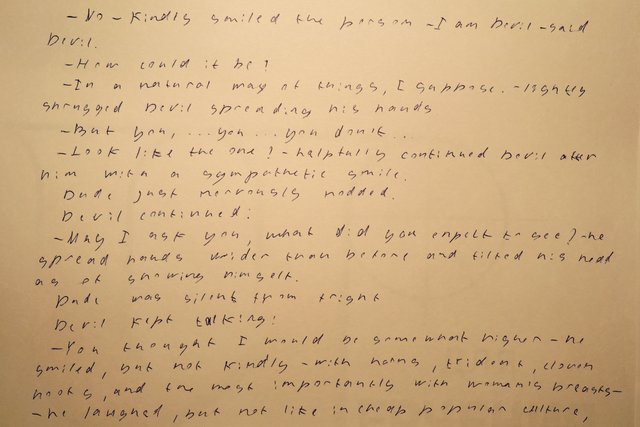 - No - Kindly smiled the person - I am Devil - said
Devil.
- How could it be?
- In a natural way of things, I suppose. - lightly
shrugged Devil spreading his hands
- But you, ... you ... you don't ...
- Look like the one? - helpfully continued Devil after
him with a sympathetic smile.
Dude just nervously nodded.
Devil continued:
- May I ask you, what did you expect to see? - he
spread hands wider than before and tilted his head
as of showing himself.
Dude was silent from fright
Devil kept talking:
- You thought I would be somewhat higher - he
smiled, but not kindly - with horns, trident, cloven
hoofs, and the most importantly with woman's breasts -
- he laughed, but not like in cheap popular culture,